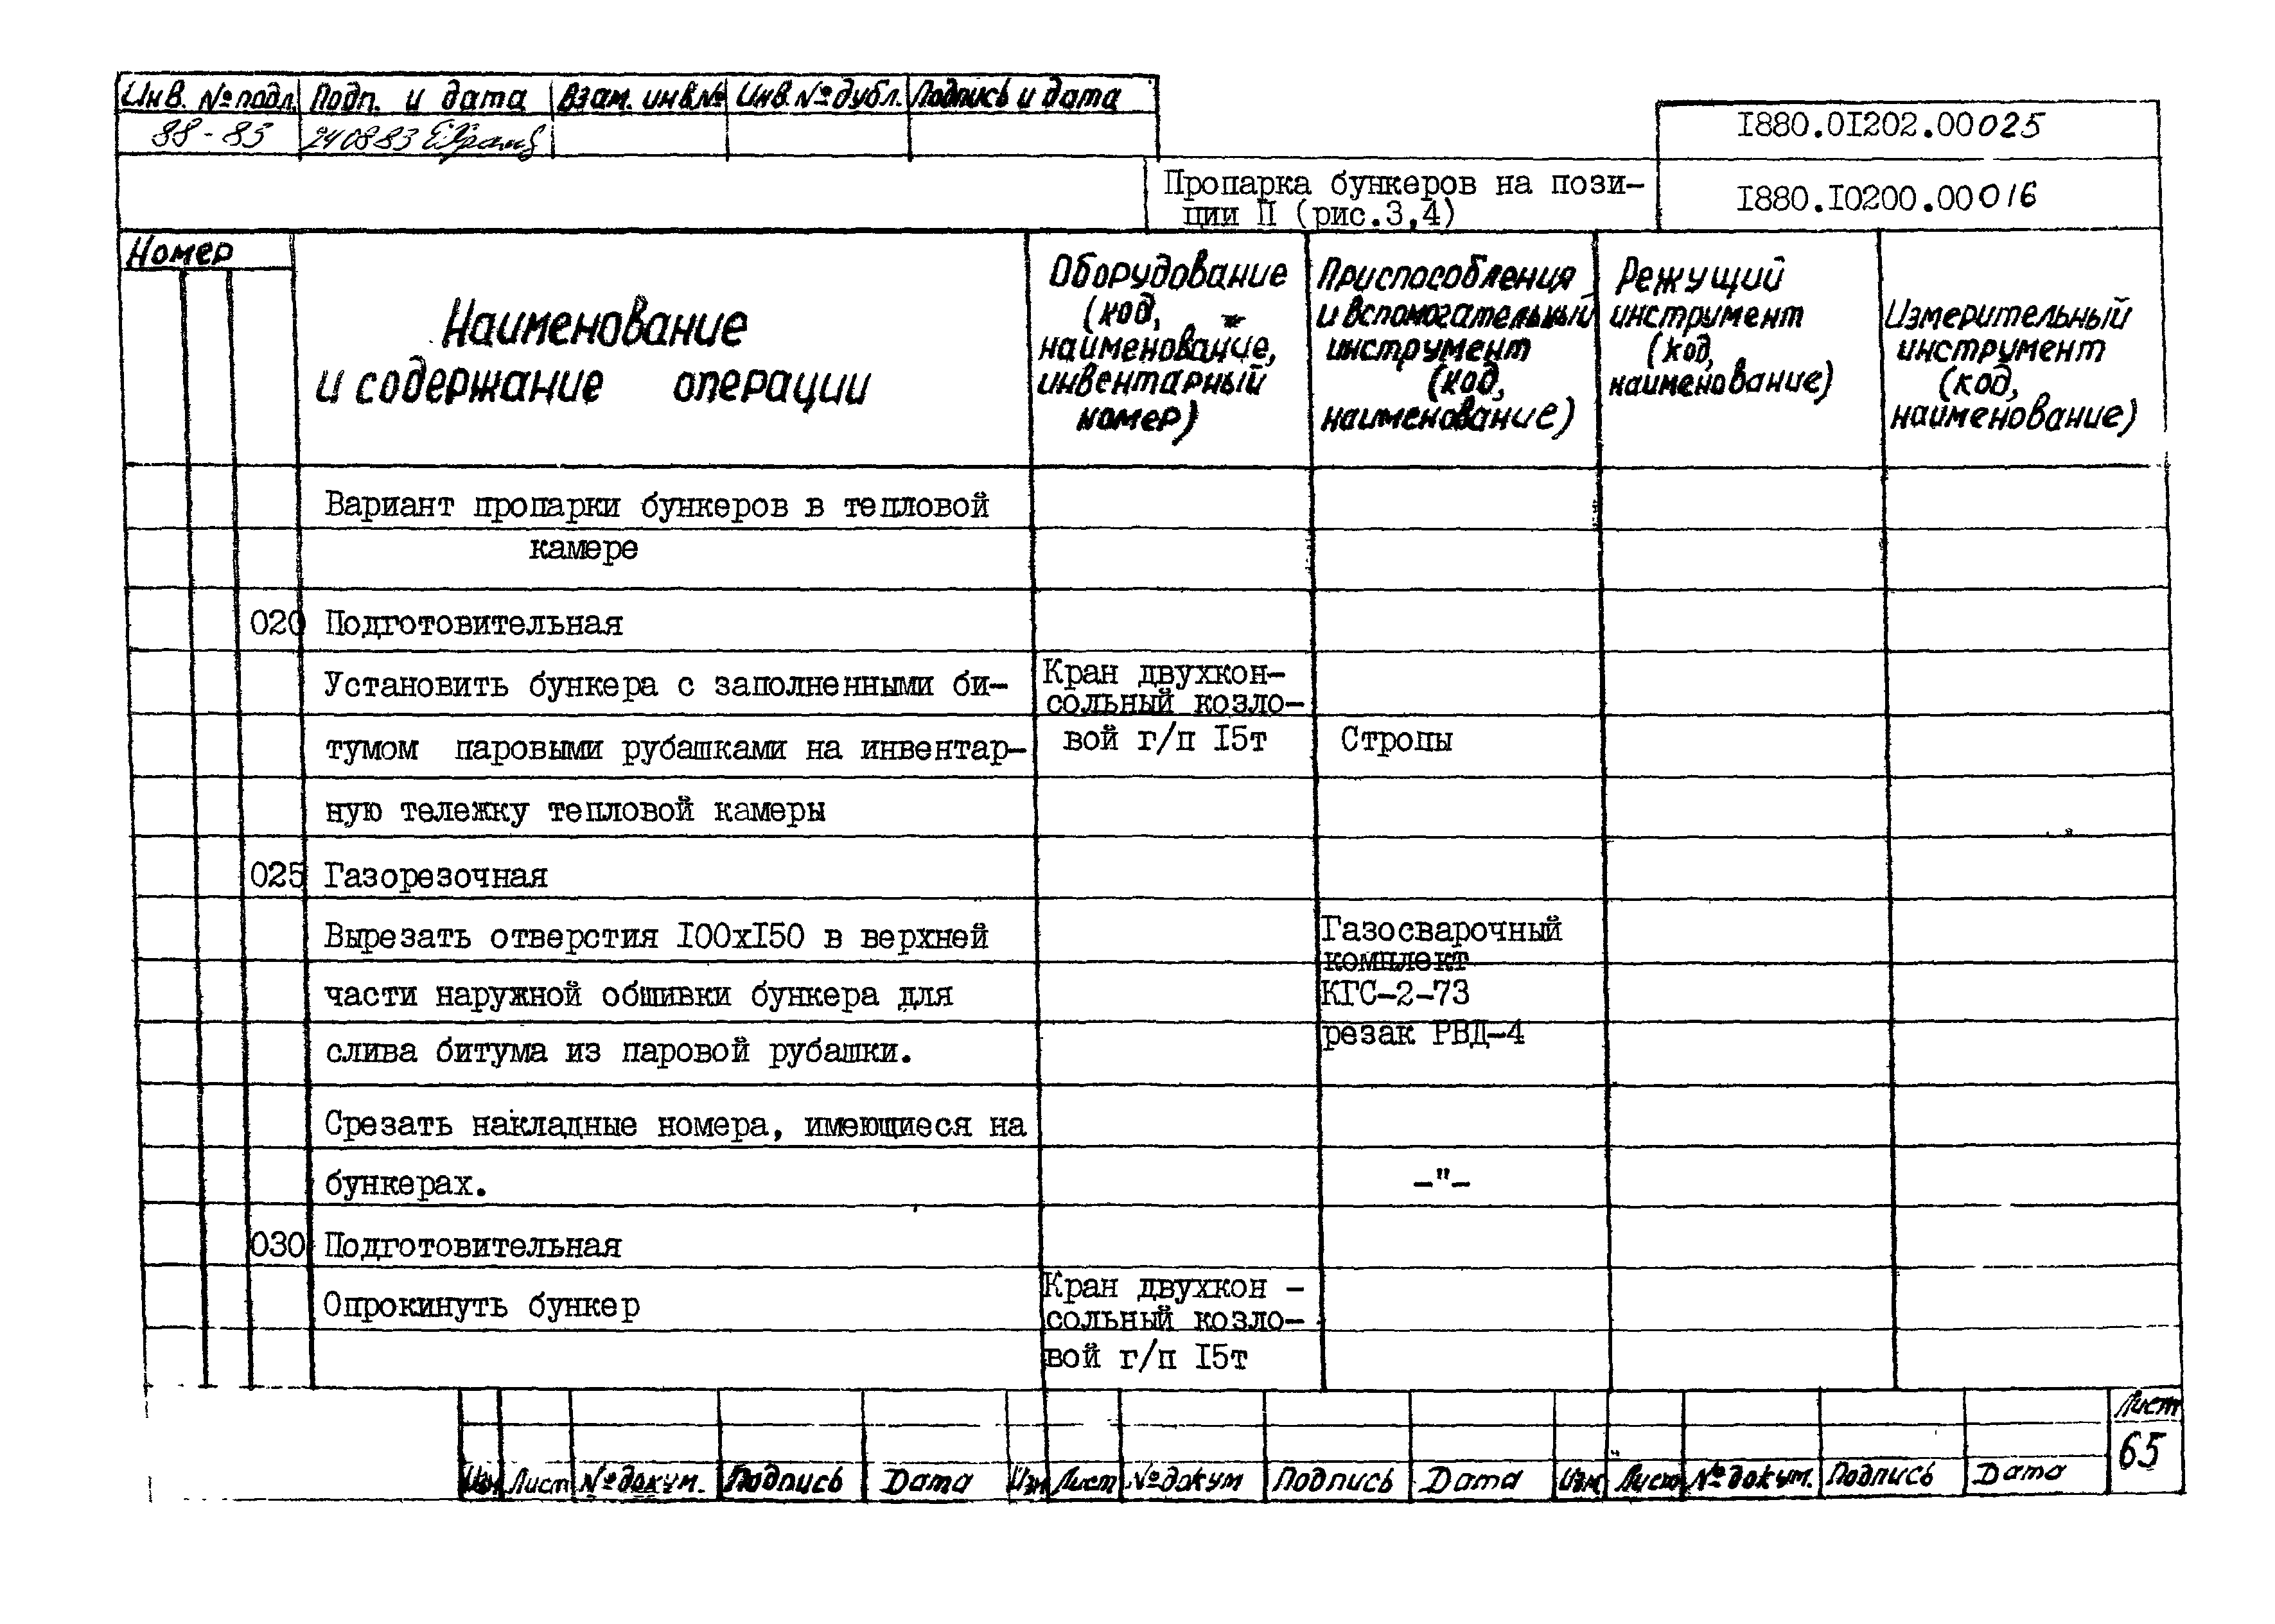 Инв. № подл. Подп. и дата Взам. инв.№ Инв. № дубл. Подпись и дата
88-83 240883
I880.0I202.00025
Пропарка бункеров на пози-
ции П (рис.3,4)
I880.I0200.00016
Номер
Наименование
и содержание операции
Оборудование
(код,
наименование,
инвентарный
номер)
Приспособления
и вспомогательный
инструмент
(код,
наименование)
Режущий
инструмент
(код,
наименование)
Измерительный
инструмент
(код,
наименование)
Вариант пропарки бункеров в тепловой
камере
020 Подготовительная
Установить бункера с заполненными би-
тумом паровыми рубашками на инвентар-
ную тележку тепловой камеры
Кран двухкон-
сольный козло-
вой г/п I5т
Стропы
025 Газорезочная
Вырезать отверстия I00хI50 в верхней
части наружной обшивки бункера для
слива битума из паровой рубашки.
Газосварочный
комплект
КГС-2-73
резак РВД-4
Срезать накладные номера, имеющиеся на
бункерах.
-"-
030 Подготовительная
Опрокинуть бункер
Кран двухкон -
сольный козло-
вой г/п I5т
Лист
65
Изм Лист № докум. Подпись Дата Изм Лист № докум Подпись Дата Изм Лист № докум. Подпись Дата